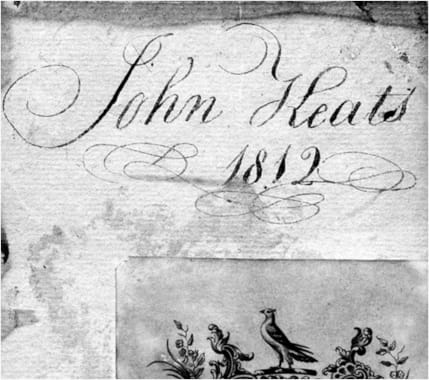 John Keats
1812